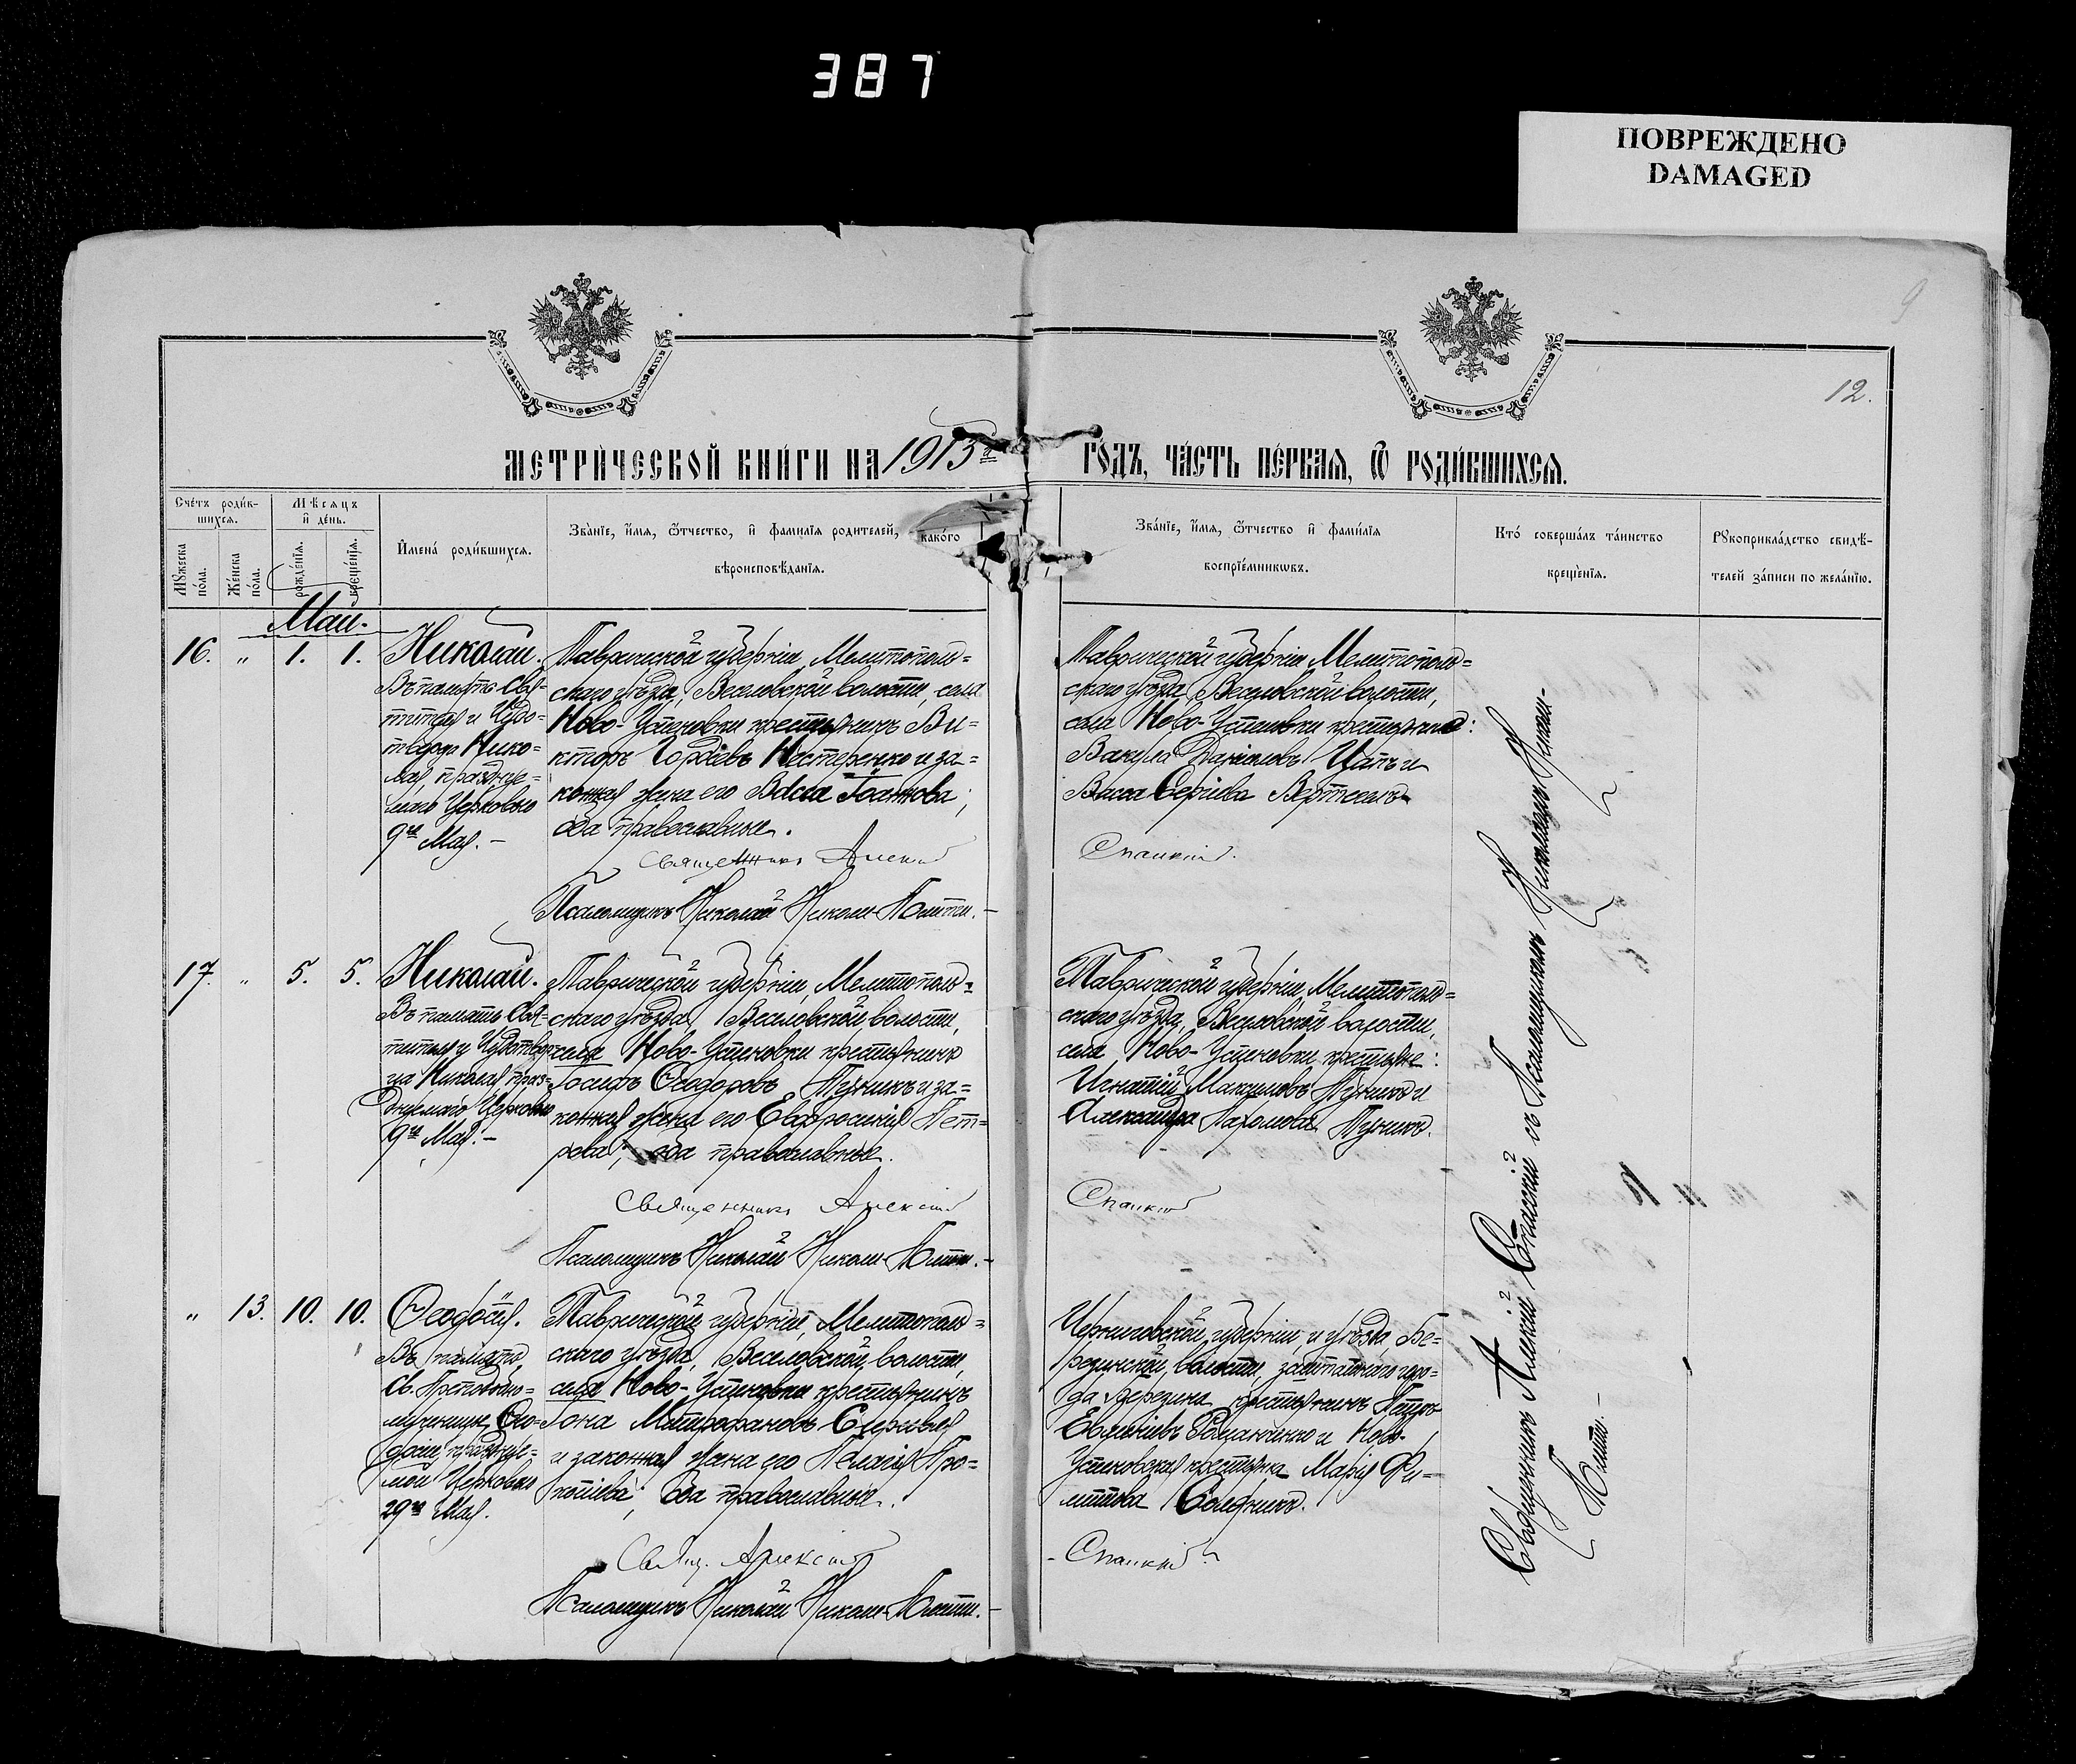 387
ПОВРЕЖДЕНО
DAMAGED
9
12.
МЕТРИ́ЧЕСКОЙ КНИ́ГИ НА 1913й
ГО́ДЪ, ЧА́СТЬ ПЕ́РВАЯ, Ѽ РОДИ́ВШИХСЯ.
Сче́тъ роди́в-
шихся.
Мѣ́сяцъ
и҆ де́нь.
Мꙋжеска
по́ла.
Же́нска
по́ла.
рожде́нїя.
креще́нїя.
И҆мена̀ роди́вшихся.
Зва́нїе, и҆́мя, ѻ҆́тчество, и҆ фами́лїя родителей, како́го
вѣроисповѣ́данїя.
Зва́нїе, и҆́мя, ѻ҆́тчество и҆ фами́лїя
воспрїе́мникѡвъ.
Кто̀ соверша́лъ та́инство
креще́нїя.
Рꙋкоприкла́дство свидѣ́-
телей за́писи по жела́нїю.
Май.
16. " 1. 1.
Николай.
Въ память Свя-
тителя и Чудо-
творца Нико-
лая, празднуе-
маго Церковью
9го Мая. –
Таврической губерніи, Мелитополь=
скаго уѣзда, Веселовской волости, села
Ново-Успеновки крестьянинъ Ви-
кторъ Гордѣевъ Нестеренко и за=
конная жена его Васса Іоаннова;
оба православные.
Священникъ Алексій
Псаломщикъ Николай Николи-Политти. –
Таврической губерніи Мелитополь=
скаго уѣзда, Веселовской волости,
села Ново-Успеновки крестьяне:
Вакула Даніиловъ Цапъ и
Васса Сергіева
Спасскій.
17. " 5. 5.
Николай.
Въ память Свя-
тителя и Чудотвор-
ца Николая праз-
днуемаго Церковью
9го Мая. –
Таврической губерніи, Мелитополь=
скаго уѣзда, Веселовской волости,
села Ново-Успеновки крестьянинъ
Іосифъ Ѳеодоровъ Пузикъ и за=
конная жена его Евфросинія Пет=
рова; оба православные.
Священникъ Алексій
Псаломщикъ Николай Николи-Политти. –
Таврической губерніи Мелитополь=
скаго уѣзда, Веселовской волости,
села Ново-Успеновки крестьяне:
Игнатій Максимовъ Пузикъ и
Александра Пахомова Пузикъ.
Спасскій
" 13. 10. 10.
Ѳеодосія.
Въ память
Св. Преподобно-
мученицы Ѳео-
досіи, празднуе-
мой Церковью
29го Мая.
Таврической губерніи, Мелитополь=
скаго уѣзда, Веселовской волости,
села Ново-Успеновки крестьянинъ
Іона Митрофановъ
и законная жена его Пелагія Про=
копіева; оба православные.
Свящ. Алексій
Псаломщикъ Николай Николи-Политти. –
Черниговской губерніи, и уѣзда, Бе=
резинской, волости, заштатнаго горо=
да Березина крестьянинъ Петръ
Евфиміевъ Романченко и Ново-
Успеновская крестьянка Марія Фи=
липпова
Спасскій.
Священникъ Алексій Спасскій съ Псаломщикомъ Николаемъ Николи-
Политти. –